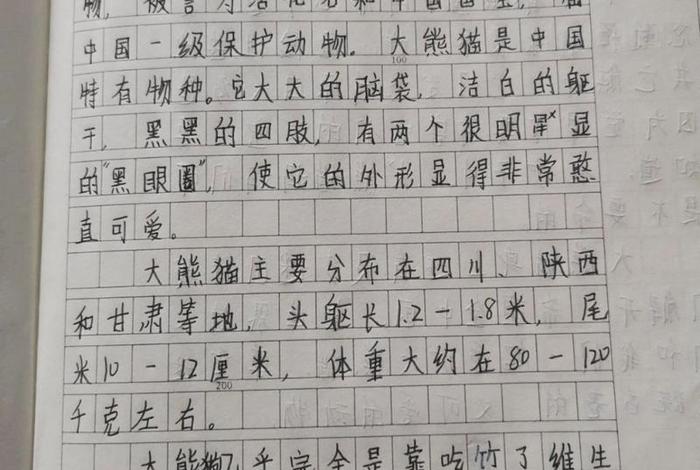 物，被誉为活化石和中国国宝，
中国一级保护动物。大熊猫是中国
100
特有物种。它大大的脑袋，洁白的躯
干，黑黑的四肢，有两个很明显
的"黑眼圈"，使它的外形显得非常憨
直可爱。
大熊猫主要分布在四川、陕西
和甘肃等地，头躯长1.2－1.8米，尾
米10－12厘米，体重大约在80－120
200
千克左右。
大熊猫几乎完全是靠吃竹子维生